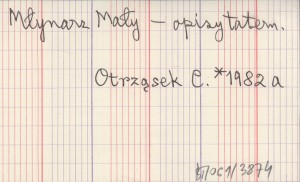 Młynarz Mały – opisytatem.
Otrząsek C. *1982 a
/10C1/3874